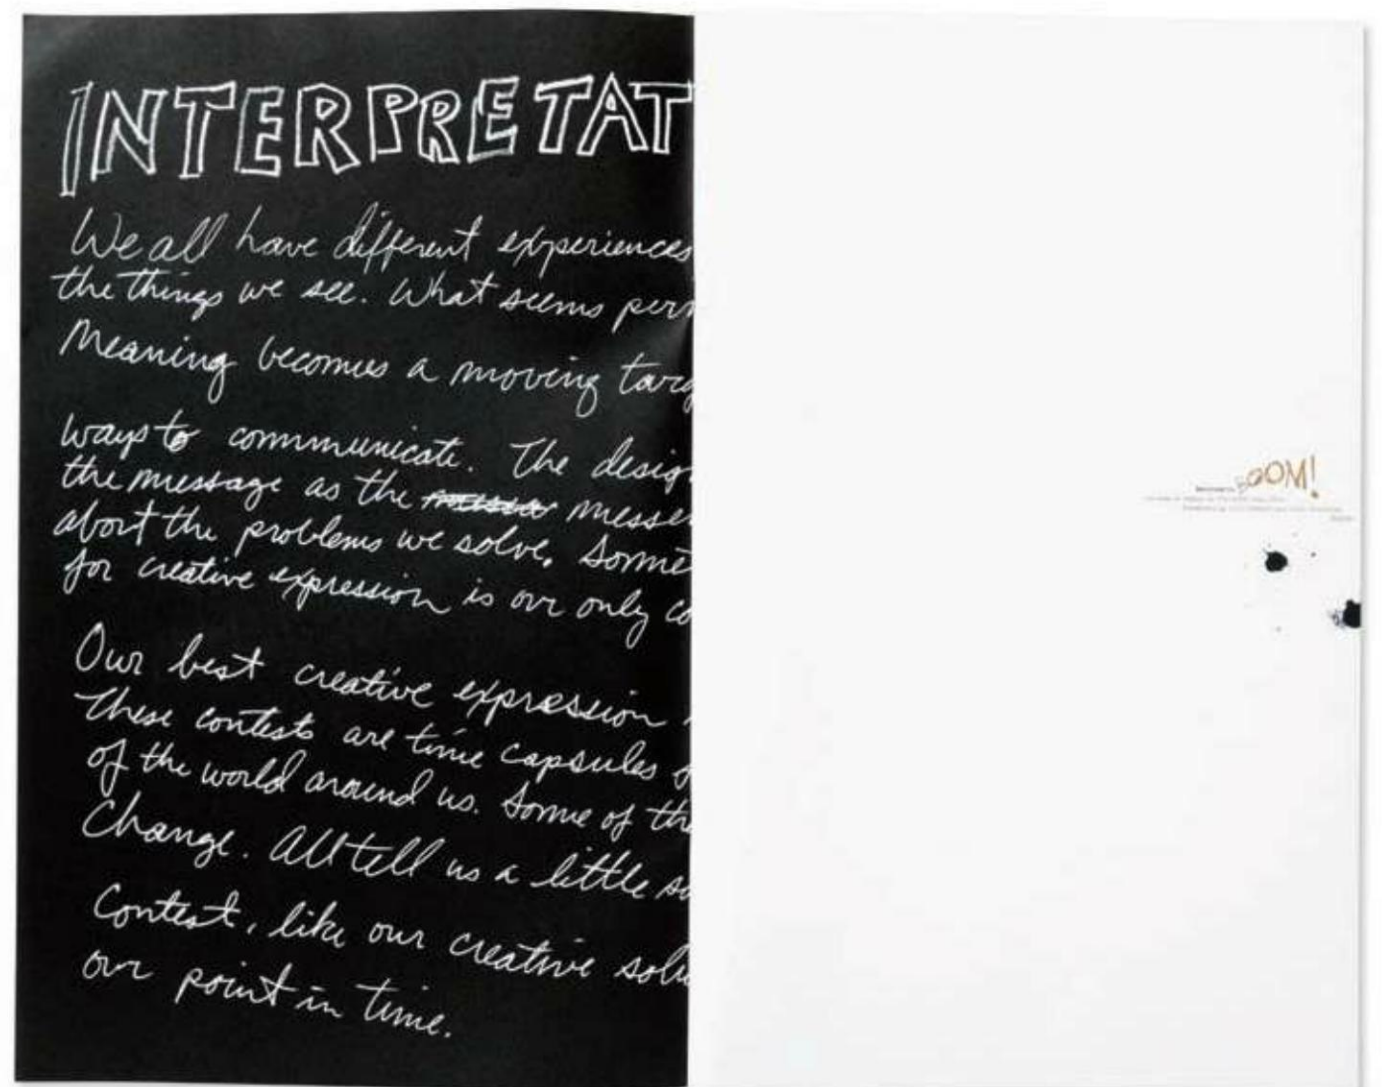 INTERPRETAT
We all have different experiences
the things we see. What seems per
Meaning becomes a moving targ
ways to communicate. The desig
the message as the messen
about the problems we solve. Some
for creative expression is our only co
Our best creative expression
These contests are time capsules o
of the world around us. Some of the
Change. All tell us a little so
Contest, like our creative solu
our point in time.
BOOM!